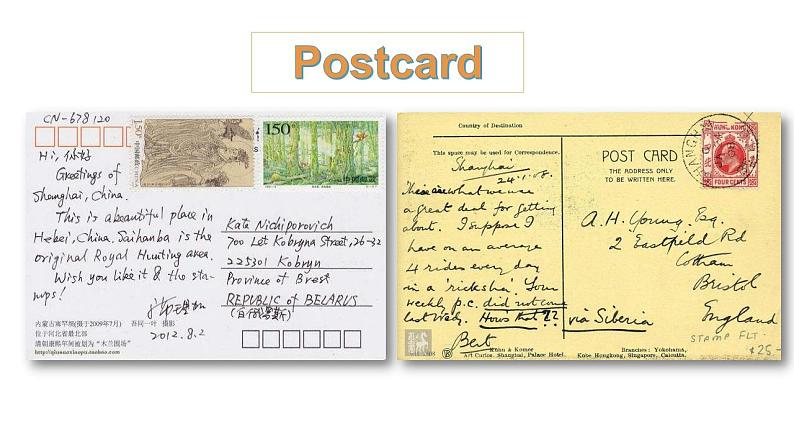 Postcard
CN-678120
Hi, 你好
Greetings of
Shanghai, China.
This is a beautiful place in
Hebei, China. Saihanba is the
original Royal Hunting area.
Wish you like it & the sta-
mps!
2012.8.2
内蒙古塞罕坝(摄于2009年7月) 吾同一叶 摄影
位于河北省最北部
清朝康熙年间被划为“木兰围场”
150
中国邮政
150
中国邮政
Kata Nichiporovich
700 Let Kobryna Street, 26-32
225301 Kobryn
Province of Brest
REPUBLIC of BELARUS
(白俄罗斯)
Country of Destination
This space may be used for Correspondence.
POST CARD
THE ADDRESS ONLY
TO BE WRITTEN HERE.
HONG KONG
FOUR CENTS
SHANGHAI
Shanghai
24.1.08.
These are what we use
a great deal for getting
about. I suppose I
have on an average
4 rides every day
in a 'ricksha'. Your
weekly p.c. did not come
last week. How's that??
Bert
A.H. Young. Esq.
2 Eastfield Rd
Cotham
Bristol
England
via Siberia
STAMP FLT.
$25-
Kuhn & Komor
Art Curios. Shanghai, Palace Hotel.
Branches: Yokohama,
Kobe Hongkong, Singapore, Calcutta.